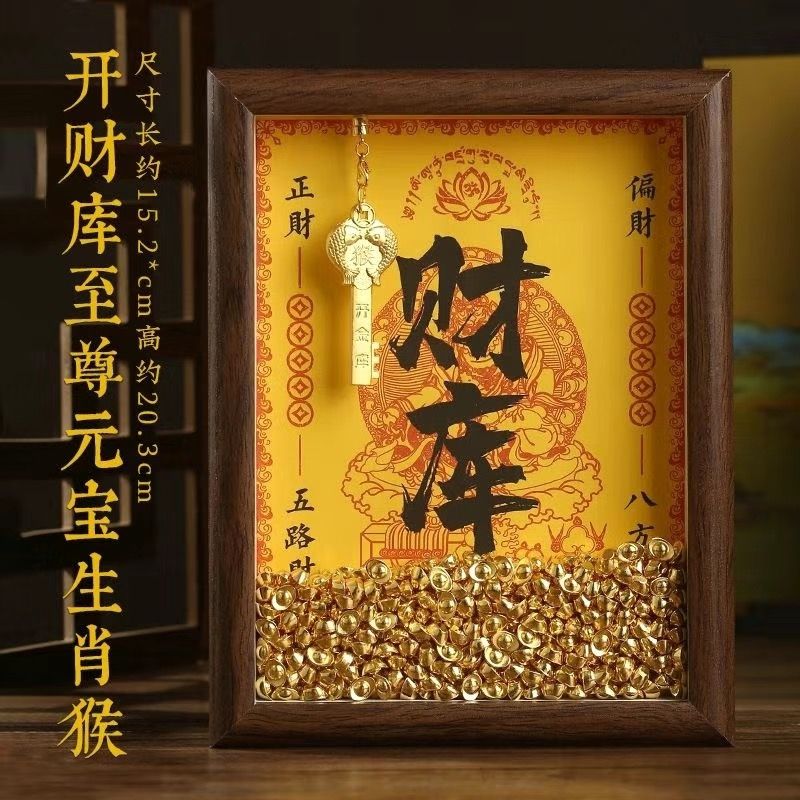 开财库至尊元宝生肖猴
尺寸长约15.2*cm高约20.3cm
正財
偏財
猴
开金库
财库
五路財
八方